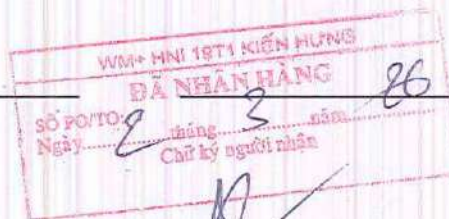 WM+ HNI 19T1 KIẾN HƯNG
ĐÃ NHẬN HÀNG
SỐ PO/TO:
Ngày 2 tháng 3 năm 26
Chữ ký người nhận